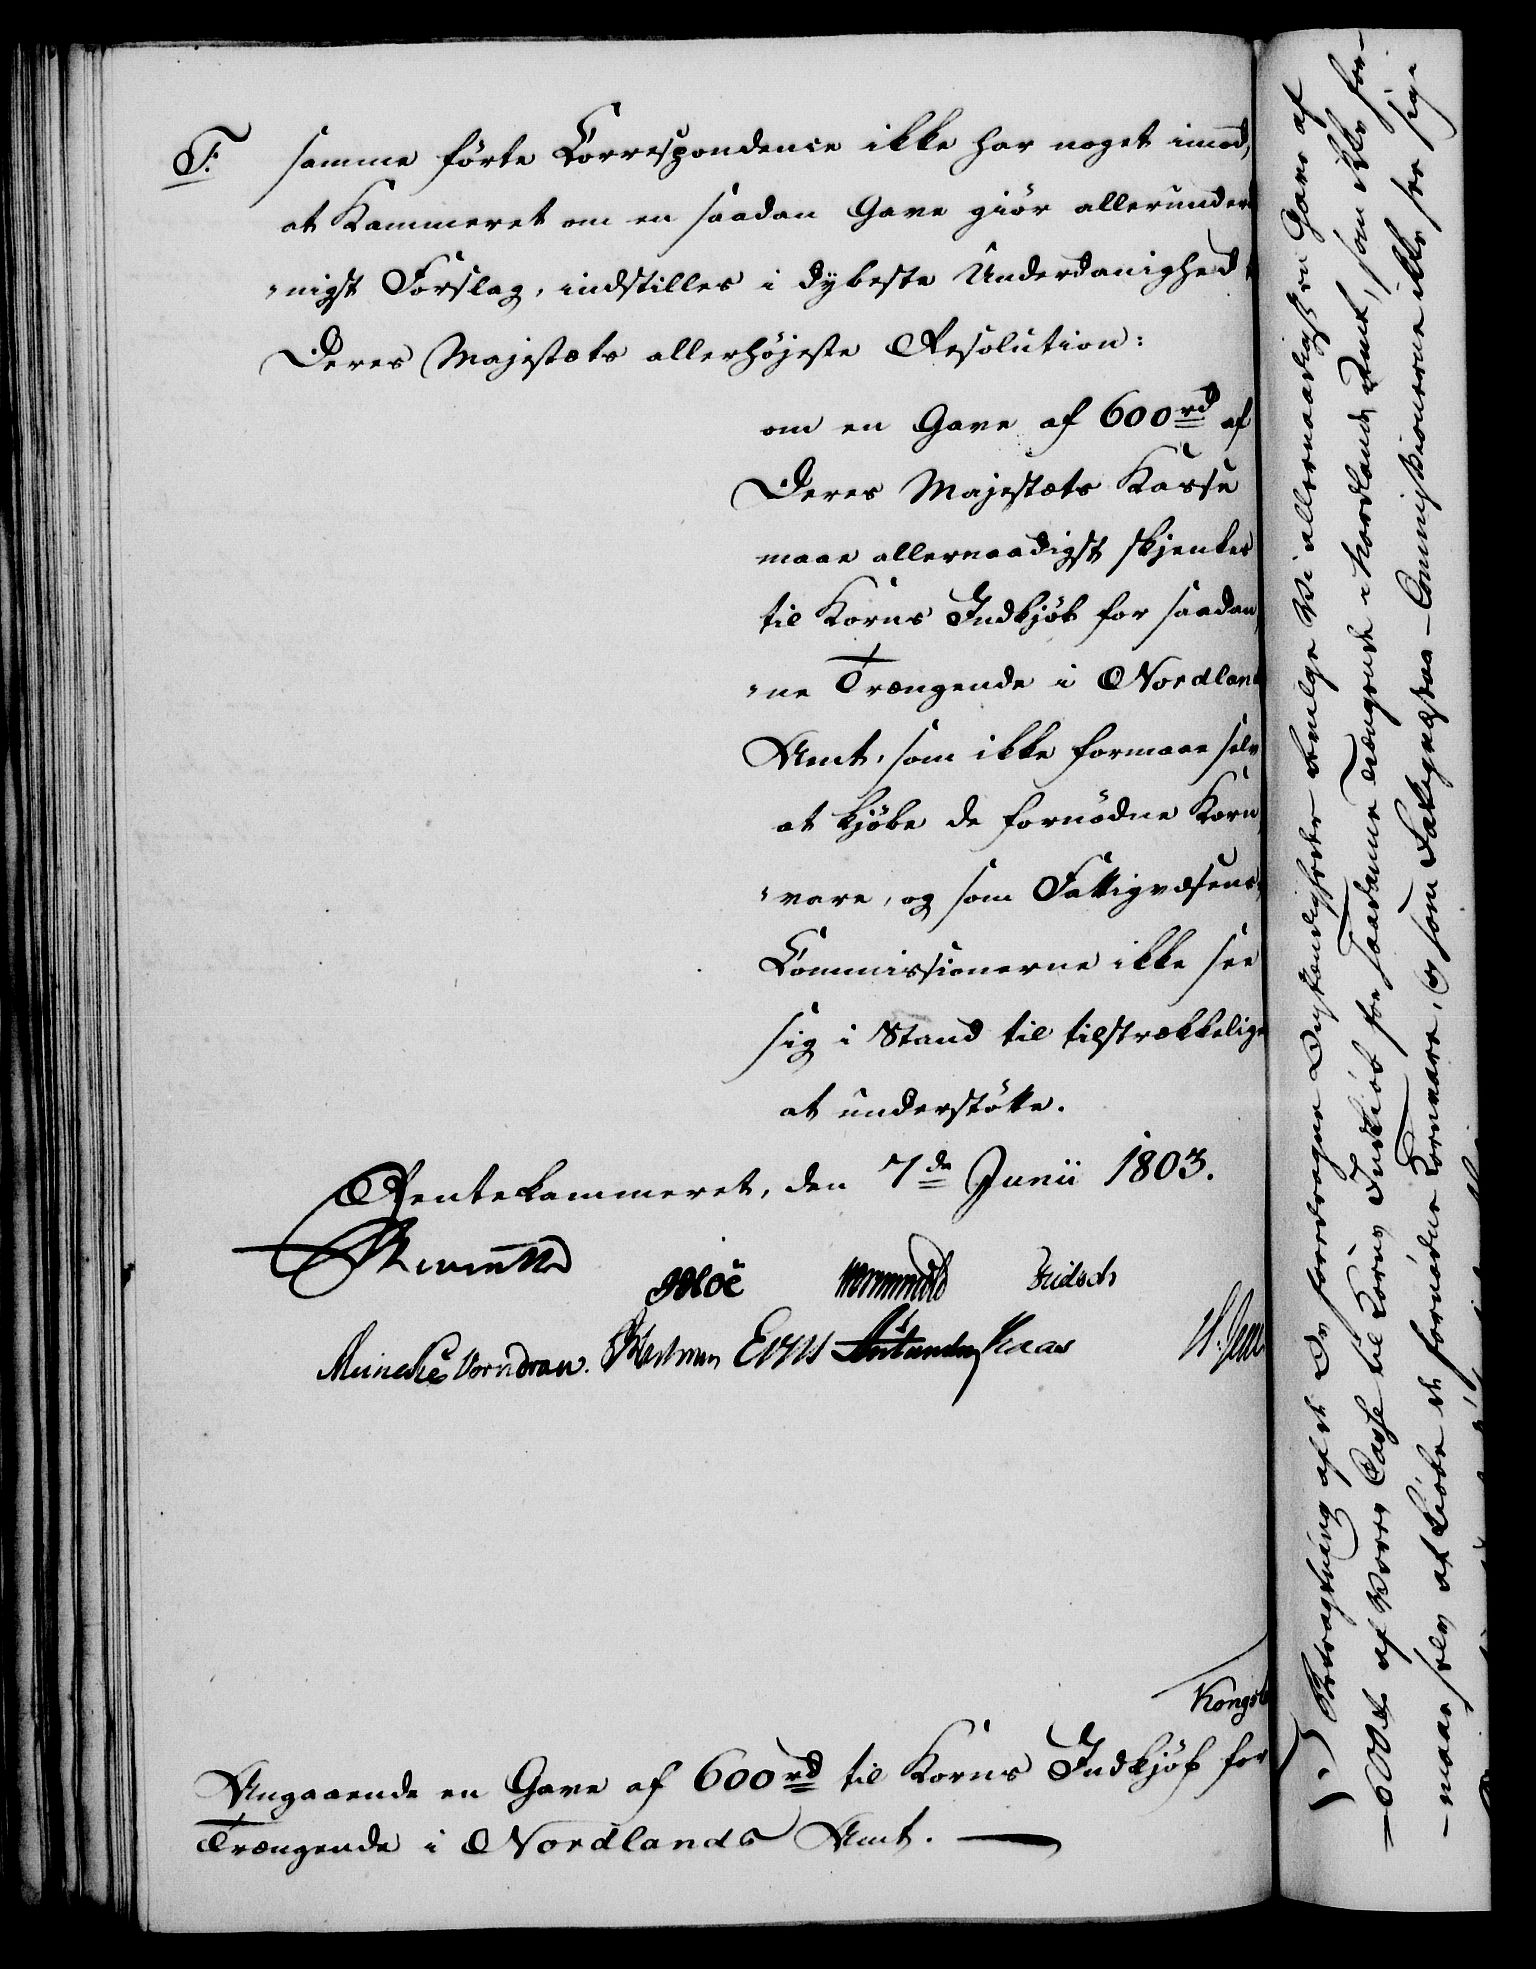 F.
samme förte Correspondence ikke har noget imod,
at Kammeret om en saadan Gave giör allerunder
-nigst Forslag, indstilles i dybeste Underdanighed
Deres Majestæts allerhöjeste Resolution:
om en Gave af 600 rd af
Deres Majestæts Kasse
maae allernaadigst skjenkes
til Korns Indkjöb for saadan
-ne Trængende i Nordland
Amt, som ikke formaae selv
at kjöbe de fornödne Korn
-vare, og som Fattigvæsens
Commissionerne ikke see
sig i Stand til tilstrækkelig
at understötte.
Rentekammeret, den 7de Junii 1803.
Reventlo
Wormskiold Fridsch
Meincke Vorndran. Kaas
H. Jen
Kongsb
Angaaende en Gave af 600 rd til Korns Indkjöb for
Trængende i Nordlands Amt.
I Betragtning af de Os foredragne Omstændigheder bevilge Vi allernaadigst en Gave af
600 rd af Vores Casse til Korns Indkiöb for saadanne Trængende i Nordlands Amt, som ikke for-
-maae selv at kiöbe de fornödne Kornvare, og som Fattigvæsens-Commissionerne ikke see sig i